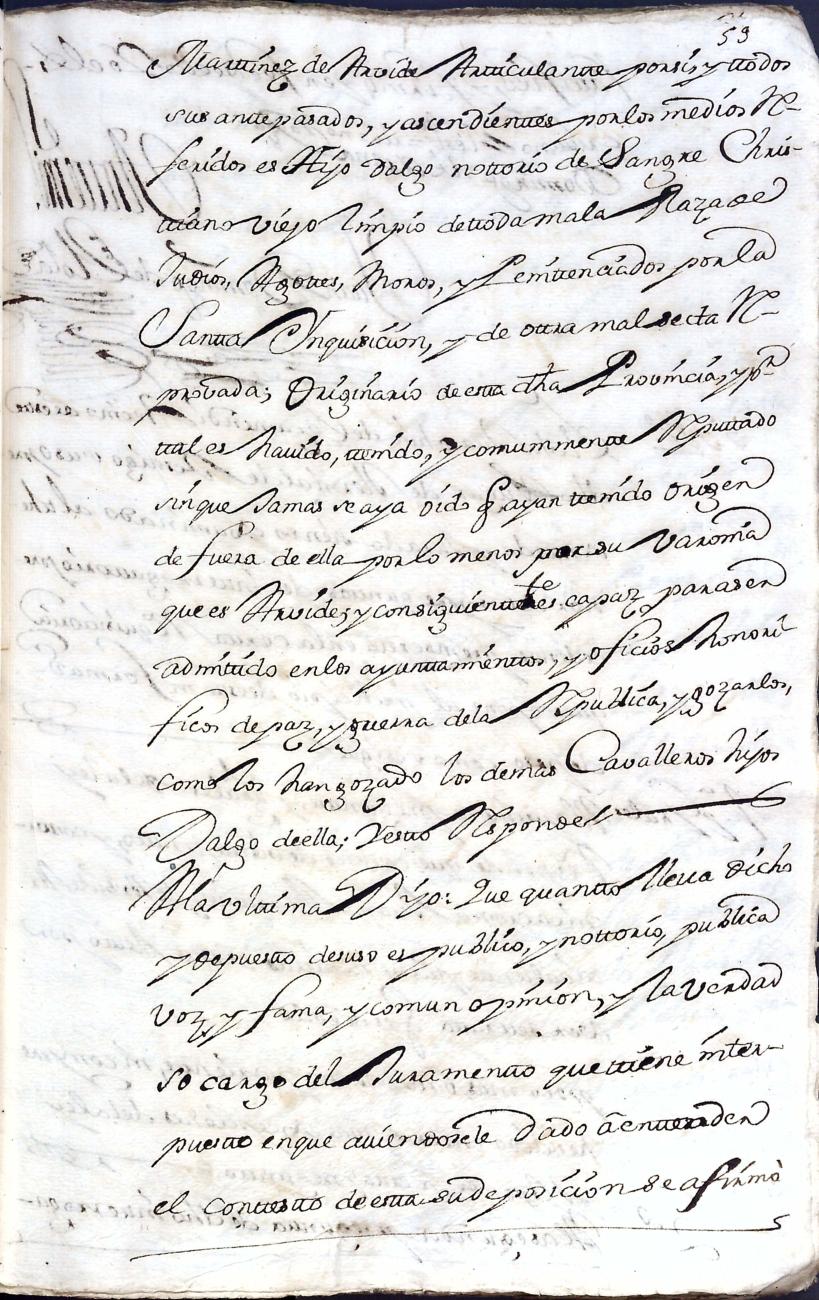 53
Martinez de Arvide Articulantte por si, y ttodos
sus antte pasados, y ascendienttes por los medios Re-
feridos es Hijo dalgo nottorio de Sangre Chris-
ttiano viejo limpio de ttoda mala Raza de
Judios, Agottes, Moros, y Penittenciados por la
Santta Ynquisicion, y de ottra mal secta Re-
provada; Originario de estta dha Provincia, y pr
ttal es havido, ttenido, y comunmentte Reputtado
sin que Jamas se aya oido q ayan ttenido origen
de fuera de ella por lo menos por su Varonia
que es Arvide; y consiguienttte es capaz para ser
admitido en los ayunttamienttos, y oficios honori-
ficos de paz, y guerra de la Republica, y gozarlos,
como los han gozado los demas Cavalleros hijos
Dalgo de ella; Y estto Responde
A la Ulttima Dijo: Que quantto lleva dicho
y depuestto de suso es publico, y nottorio, publica
voz, y fama, y comun opinion, y la verdad
so cargo del Juramentto que ttiene inter-
puestto en que aviendosele dado a enttender
el conttestto de estta su deposicion se afirmò